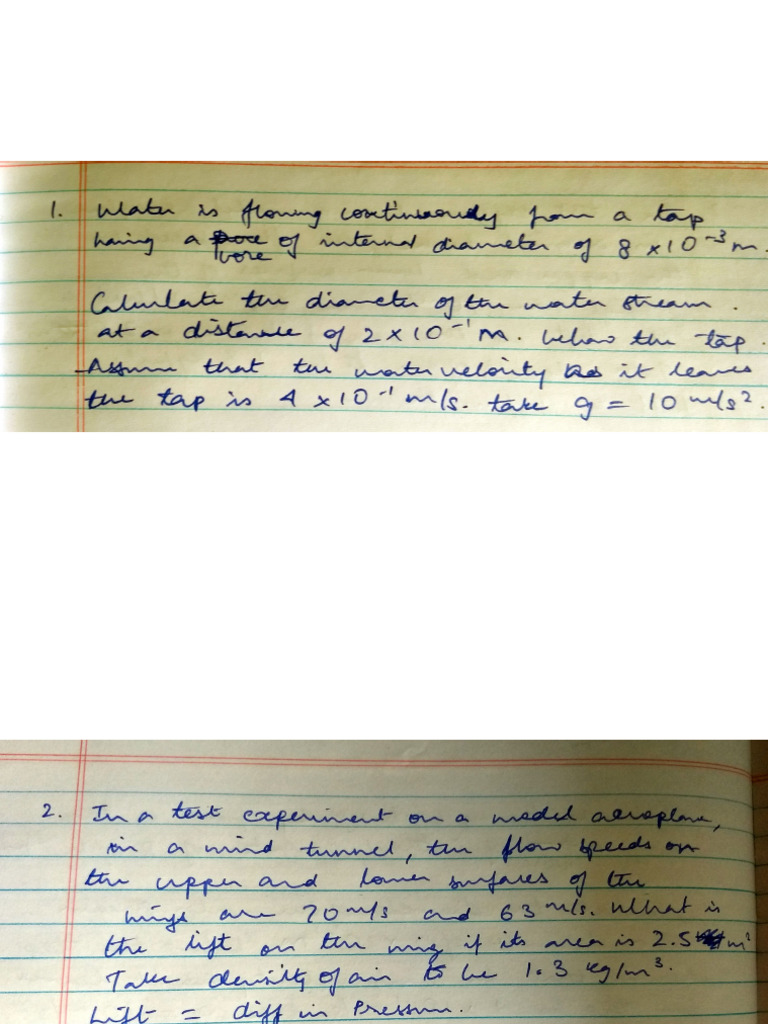 1. Water is flowing continuously from a tap
having a bore of internal diameter of 8 × 10⁻³ m.
Calculate the diameter of the water stream.
at a distance of 2 × 10⁻¹ m. below the tap.
Assume that the water velocity as it leaves
the tap is 4 × 10⁻¹ m/s. take g = 10 m/s².
2. In a test experiment on a model aeroplane,
in a wind tunnel, the flow speeds on
the upper and lower surfaces of the
wings are 70 m/s and 63 m/s. What is
the lift on the wing if its area is 2.5 m²
Take density of air to be 1.3 kg/m³.
Lift = diff in Pressure.